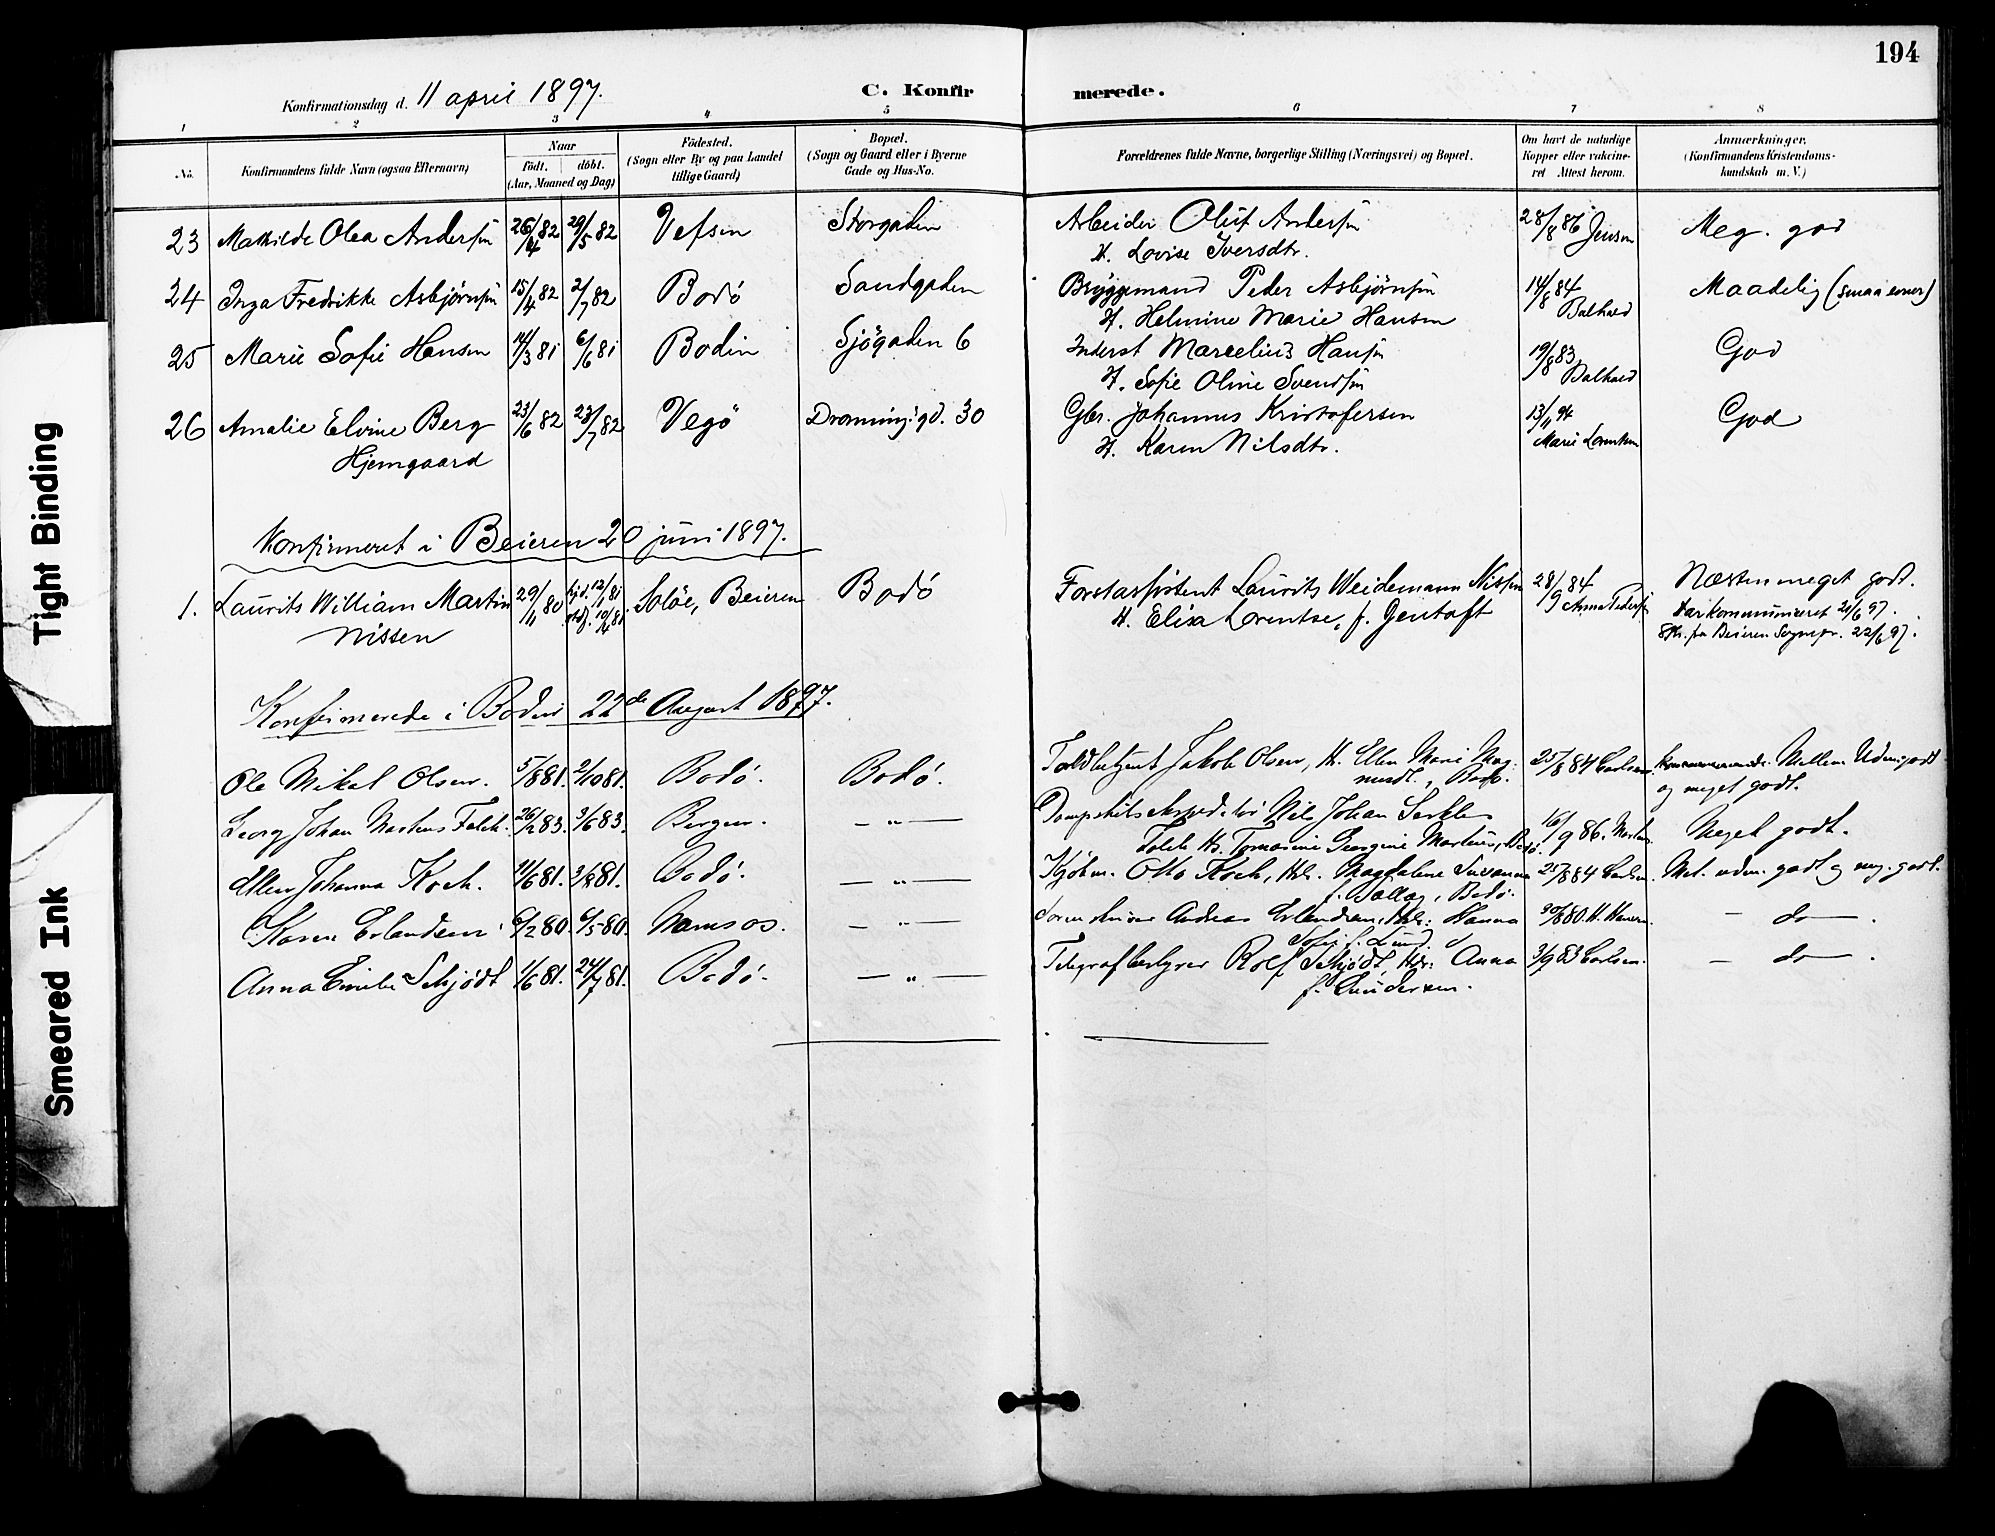 194
Konfirmationsdag d. 11 april 1897.
C. Konfirmerede.
1 2 3 4 5 6 7 8
No.
Konfirmandens fulde Navn (ogsaa Efternavn)
Naar
Födt. döbt.
(Aar, Maaned og Dag)
Födested.
(Sogn eller By og paa Landet
tillige Gaard)
Bopæl.
(Sogn og Gaard eller i Byerne
Gade og Hus-No.
Forældrenes fulde Navne, borgerlige Stilling (Næringsvei) og Bopæl.
Om havt de naturlige
Kopper eller vakcine-
ret Attest herom.
Anmærkninger.
(Konfirmandens Kristendoms-
kundskab m. V.)
23 Mathilde Olea Andersen 26/4 82 29/5 82 Vefsen Storgaden Arbeider Oluf Andersen 28/8 86 Jensen Meg. god
H. Lovise Iversdtr.
24 Inga Fredrikke Asbjørnsen 15/4 82 2/7 82 Bodö Sandgaden Bryggemand Peder Asbjørnsen 14/8 84 Maadelig (smaa evner)
H. Helmine Marie Hansen
25 Marie Sofie Hansen 14/3 81 6/6 81 Bodin Sjögaden 6 Inderst Marcelius Hansen 19/8 83 God
H. Sofie Oline Svendsen
26 Amalie Elvine Berg 23/6 82 23/7 82 Vegö Dronning. gd. 30 Gbr. Johannes Kristofersen 13/11 94 God
Hjemgaard H. Karen Nilsdtr. Marie Lorentsen
Konfirmeret i Beieren 20 juni 1897.
1. Laurits William Martin 29/11 80 hjd. 12/1 81 Soløe, Beieren Bodö Forstassistent Laurits Weidemann Nissen 28/9 84 Næsten meget godt.
Nissen stadf. 10/4 81 H. Elisa Lorentse, f. Gentoft Anna Pedersen Har kommuniceret 20/6 97.
fra Beieren Sognepr. 22/6 97.
Konfirmerede i Bodin 22de August 1897.
Ole Mikal Olsen. 5/8 81. 2/10 81. Bodö. Bodö. Toldbetjent Jakob Olsen, H. Ellen Marie Mag- 25/8 84 Carlsen. Mellem Udm. godt
og meget godt.
Georg Johan Martens Falch. 26/2 83. 3/6 83. Bergen. — " — Nils Johan 16/9 86. Meget godt.
Falch H. Tomasine Georgine
Ellen Johanna Koch. 11/6 81. Bodö. — " — Kjöbm. Otto Koch, Magdalene Susanna 25/8 84 Carlsen. Mel. udm. godt og meg. godt.
Bodö.
Karen Erlandsen 6/2 80. 6/5 80. Namsos. — " — Sorenskriver Andreas Erlandsen, Hanna 30/8 80. H. Hansen. — do — .
Sofie f. Lund.
Anna Emilie Schjödt 1/6 81. 24/7 81. Bodö. — " — Telegrafbestyrer Rolf Schjödt, Anna 3/9 83 Carlsen. — do — .
f. Gundersen.
Tight Binding
Smeared Ink